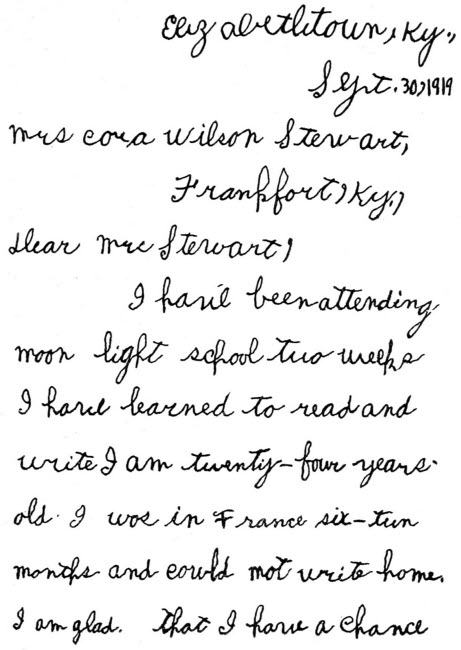 Elizabethtown, Ky.,
Sept. 30, 1919
Mrs Cora Wilson Stewart,
Frankfort, Ky.,
Dear Mrs Stewart,
I have been attending
moon light school two weeks
I have learned to read and
write I am twenty-four years.
old. I was in France six-teen
months and could not write home.
I am glad. that I have a chance